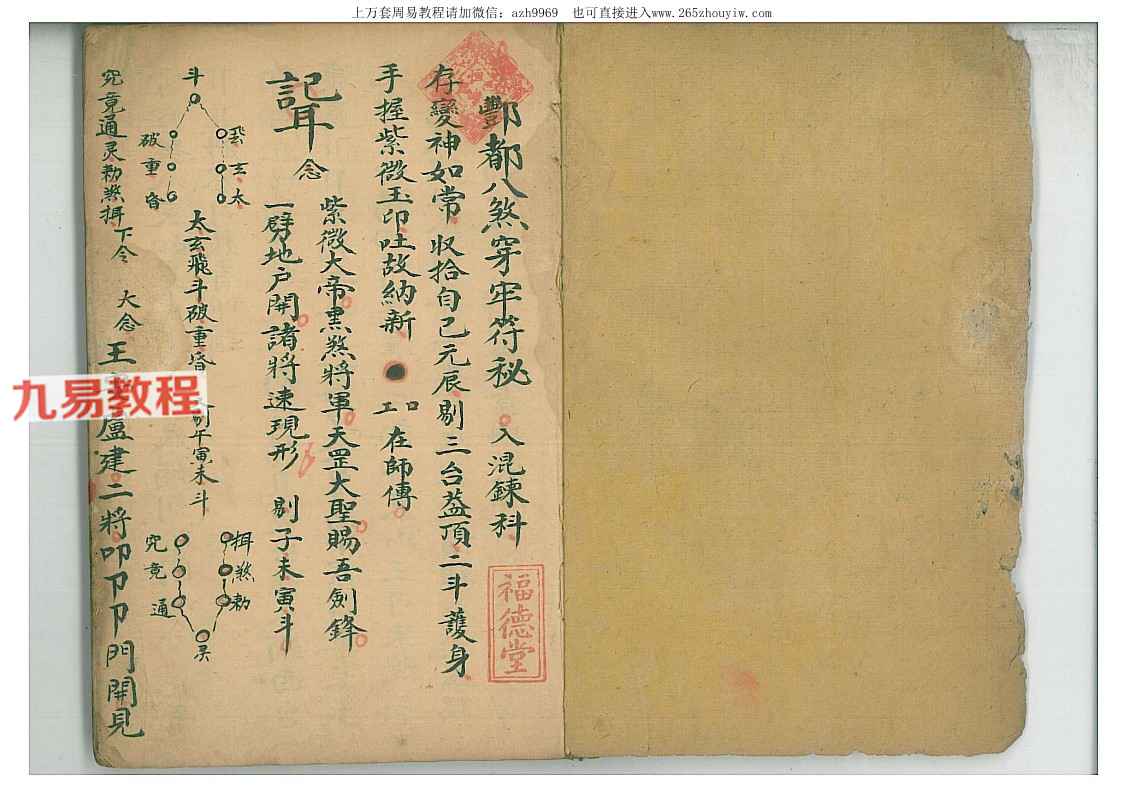 上万套周易教程请加微信：azh9969　也可直接进入www.265zhouyiw.com
酆都八煞穿牢符秘　入混鍊科
福德堂
存變神如常收拾自己元辰剔三台益頂二斗護身
手握紫微玉印吐故納新　在師傳
念
紫微大帝黑煞將軍天罡大聖賜吾劍鋒
一劈地户開諸將速現形　剔子未寅斗
斗
破重昏
玄太
太玄飛斗破重昏　剔午寅未斗
究竟通
灵
煞勅
究竟通灵勅煞摄下令　大念
王　盧建二將叩卩卩門開見
九易教程